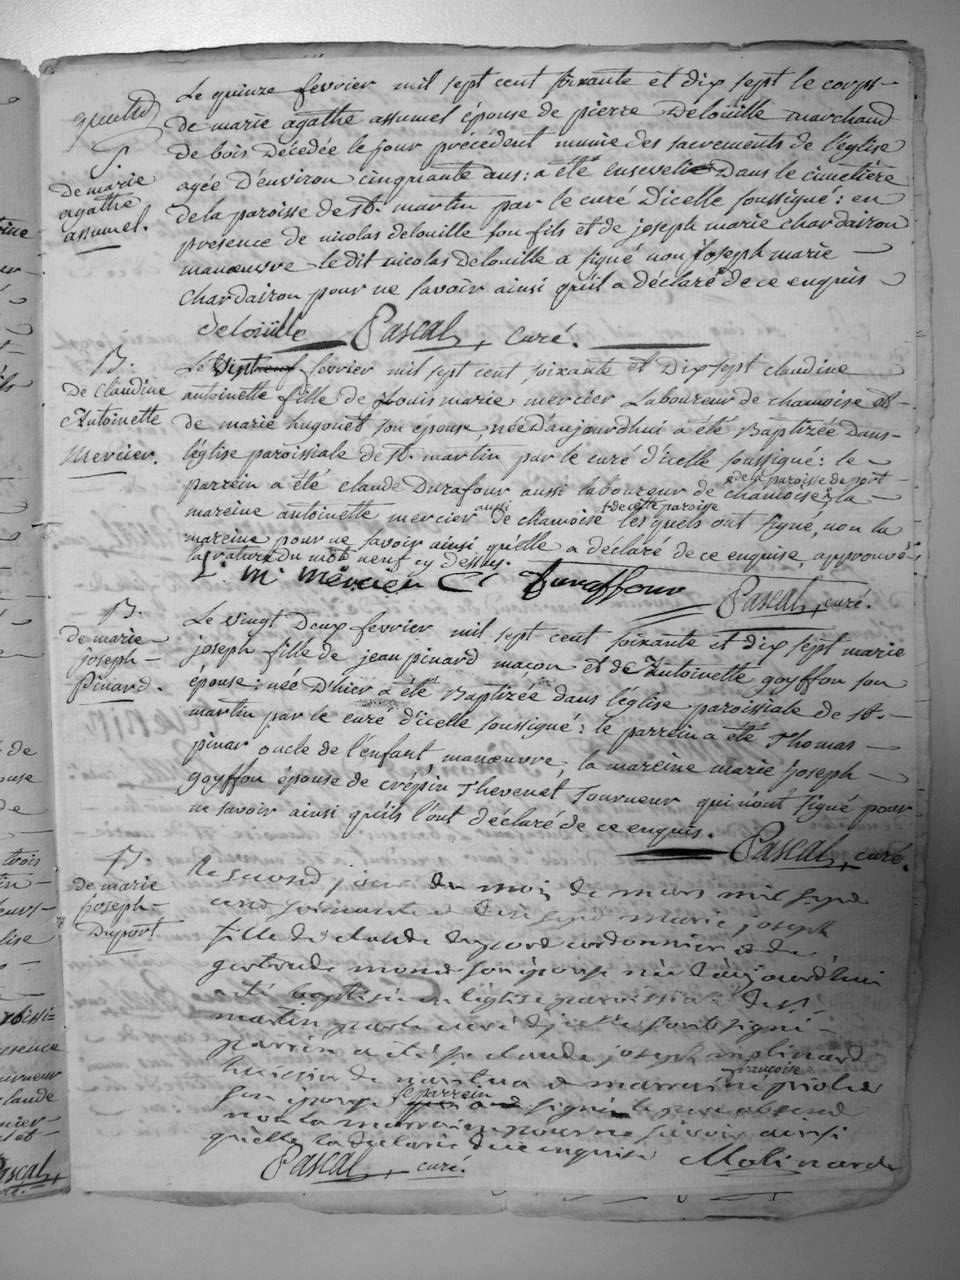 S.
de marie
agathe
assumel.
Le quinze fevrier mil sept cent soixante et dix sept le corps
de marie agathe assumel épouse de pierre Deloüille marchand
de bois Décédée le jour précédent munie des sacrements de l'église
agée d'environ cinquante ans : a été ensevelie dans le cimetière
de la paroisse de St. martin par le curé D'icelle soussigné : en
présence de nicolas delouille son fils et de joseph marie chardairon
manœuvre le dit nicolas delouille a signé non joseph marie
chardairon pour ne savoir ainsi qu'il a déclaré de ce enquis
deloüille Pascal, curé.
B.
De Claudine
Antoinette
Mercier.
Le vingt fevrier mil sept cent soixante et Dix sept claudine
antoinette fille de Louis marie mercier Laboureur de chamoise et
de marie hugonet son épouse, née D'aujourdhui a été Baptizée Dans
l'église paroissiale de St. martin par le curé d'icelle soussigné : le
parrein a été claude Durafour aussi laboureur de chamoise, la
de la paroisse de port
mareine antoinette mercier aussi de chamoise lesquels ont signé, non la
de cette paroisse
mareine pour ne savoir ainsi qu'elle a déclaré de ce enquise, approuvé
la rature du mot neuf cy dessus.
L. m. mercier C Duraffour Pascal, curé.
B.
de marie
joseph
Pinard.
Le vingt Deux fevrier mil sept cent soixante et dix sept marie
joseph fille de jean pinard maçon et de Antoinette goyffon son
épouse : née D'hier a été Baptizée dans l'église paroissiale de St.
martin par le curé d'icelle soussigné : le parrein a été Thomas
pinar oncle de l'enfant, manœuvre, la mareine marie joseph
goyffon épouse de crépin Thevenet Tourneur qui n'ont signé pour
ne savoir ainsi qu'ils l'ont déclaré de ce enquis.
Pascal, curé.
B.
de marie
joseph
Duport
Le second jour du moi de mars mil sept
cent soixante et dix sept marie joseph
fille de claude duport cordonnier et de
gertrude monet son épouse née d'aujourd'huii
a été baptisée en l'église paroissiale de St
martin par le curé d'icelle soussigné
parrein a été sr claude joseph molinard
de nantua et marraine françoise
son épouse le parrein signé le père absend
non la marraine pour ne savoir ainsi
quelle la déclaré de ce enquise Molinard
Pascal, curé.